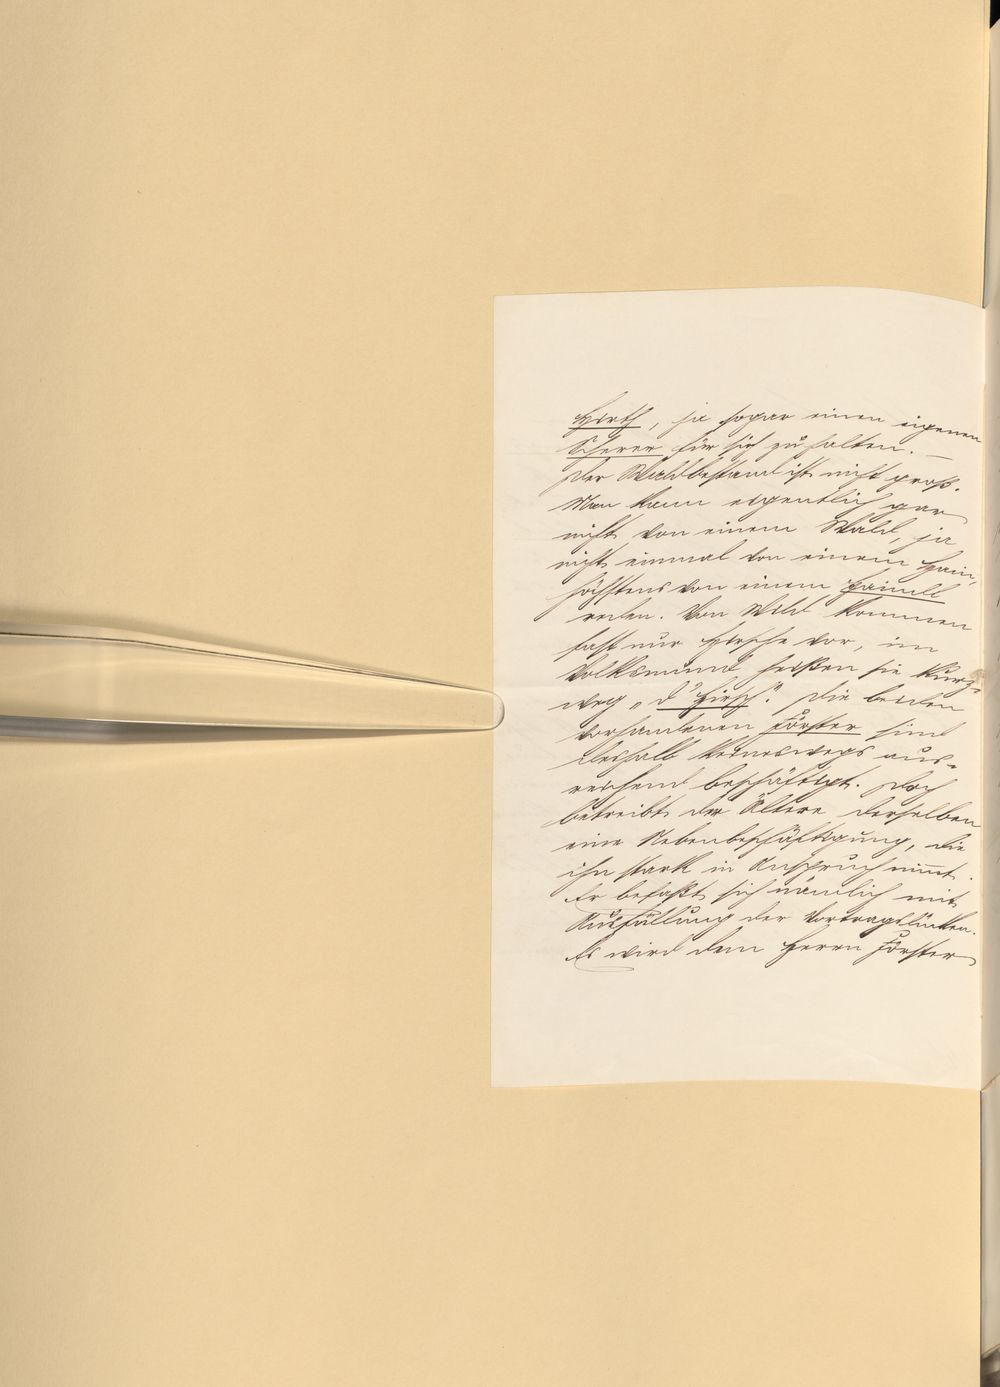 Hirth, ja sogar einen eigenen
Scherer für sich zu halten. —
Der Waldbestand ist nicht groß.
Man kann eigentlich gar
nicht von einem Wald, ja
nicht einmal von einem Hain,
höchstens von einem Haindl
reden. Von Wild kommen
fast nur Hirsche vor, im
Volksmund heißen sie kurz-
weg „d' Hirsch". Die beiden
vorhandenen Förster sind
deshalb keineswegs aus-
reichend beschäftigt. Doch
betreibt der Ältere derselben
eine Nebenbeschäftigung, die
ihn stark in Anspruch nimmt.
Er befaßt sich nämlich mit
Ausfüllung der Vortragslücken.
Es wird dem Herrn Förster